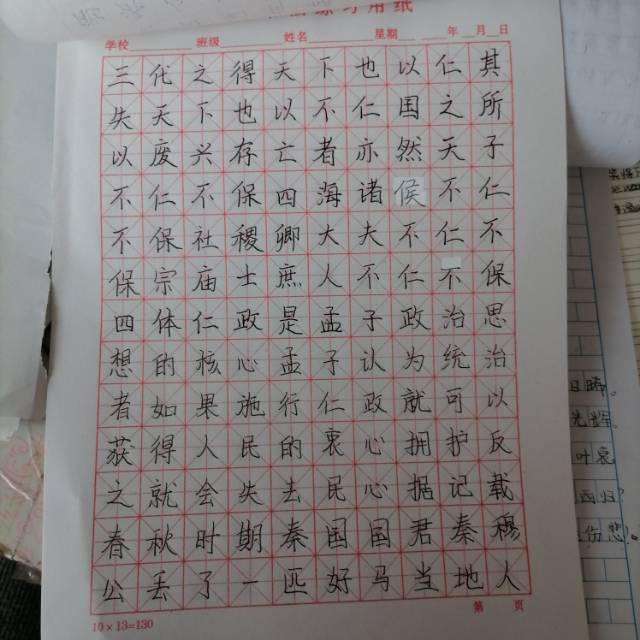 练习用纸
学校 班级 姓名 星期 年 月 日
三化之得天下也以仁其
失天下也以不仁国之所
以废兴存亡者亦然天子
不仁不保四海诸侯不仁
不保社稷卿大夫不仁不
保宗庙士庶人不仁不保
四体仁政是孟子政治思
想的核心孟子认为统治
者如果施行仁政就可以
获得人民的衷心拥护反
之就会失去民心据记载
春秋时期秦国国君秦穆
公丢了一匹好马当地人
第 页
10×13=130